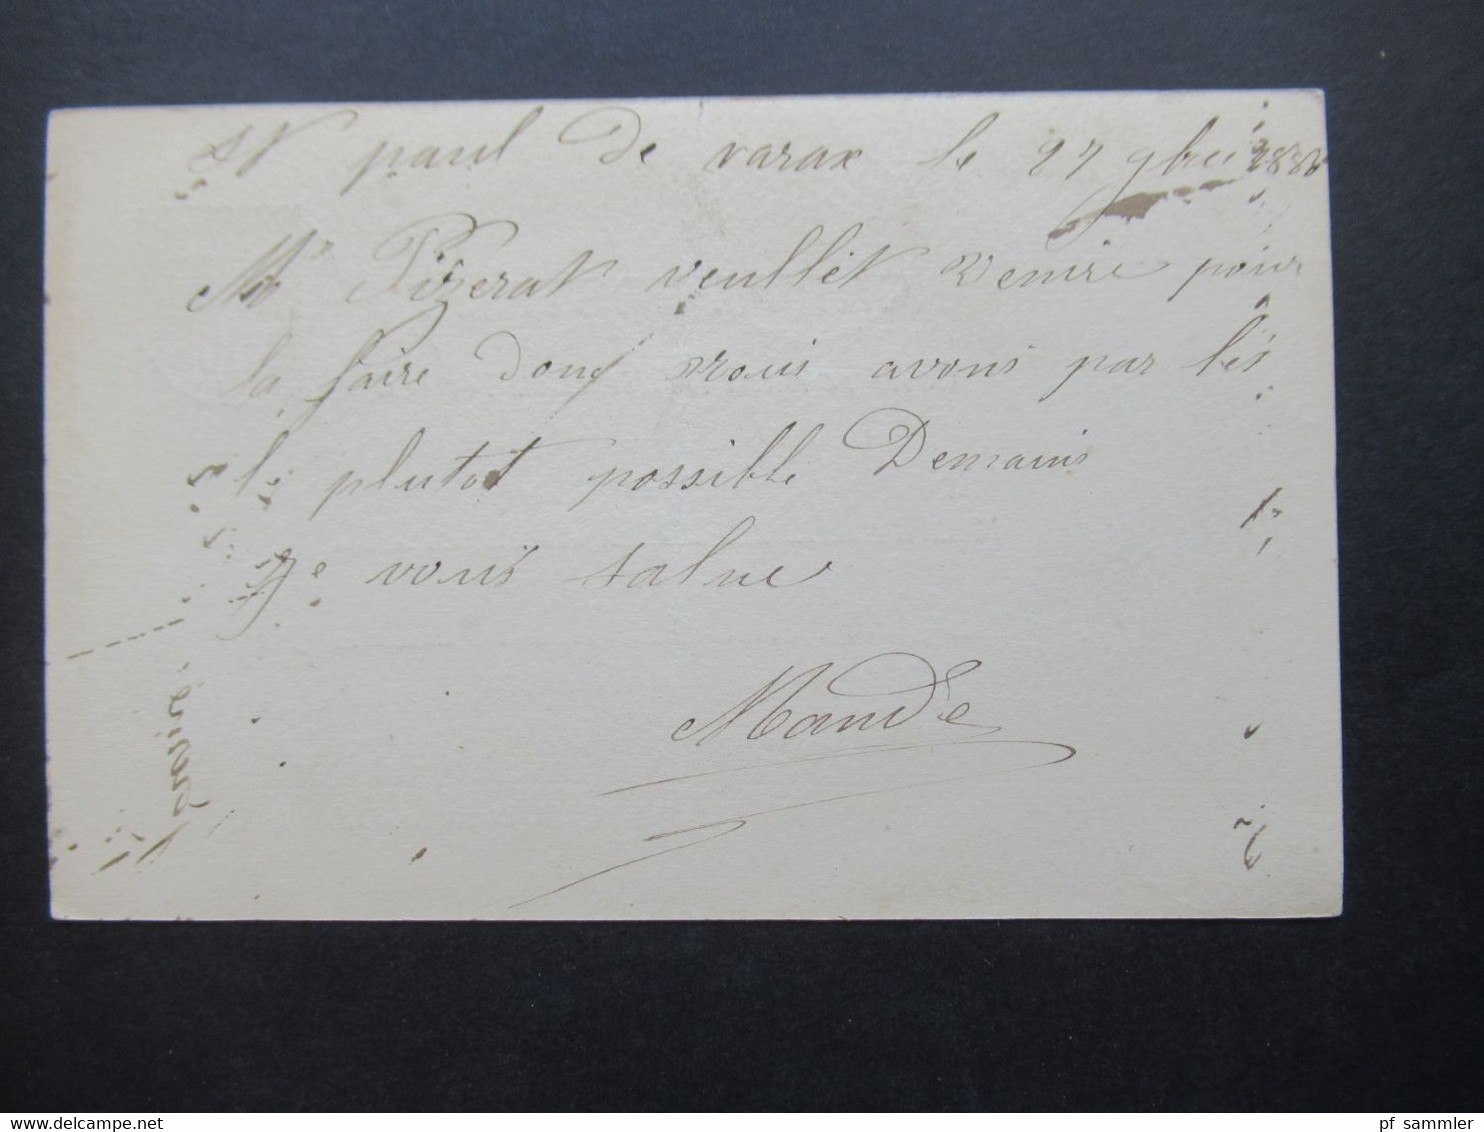 St paul De varax le 27 9bre 188
Mr Pizerat veullet venire pour
la faire dont nous avons par lés
le plutot possible Demains
Je vous salue
Mande
delcampe.net
pf_sammler